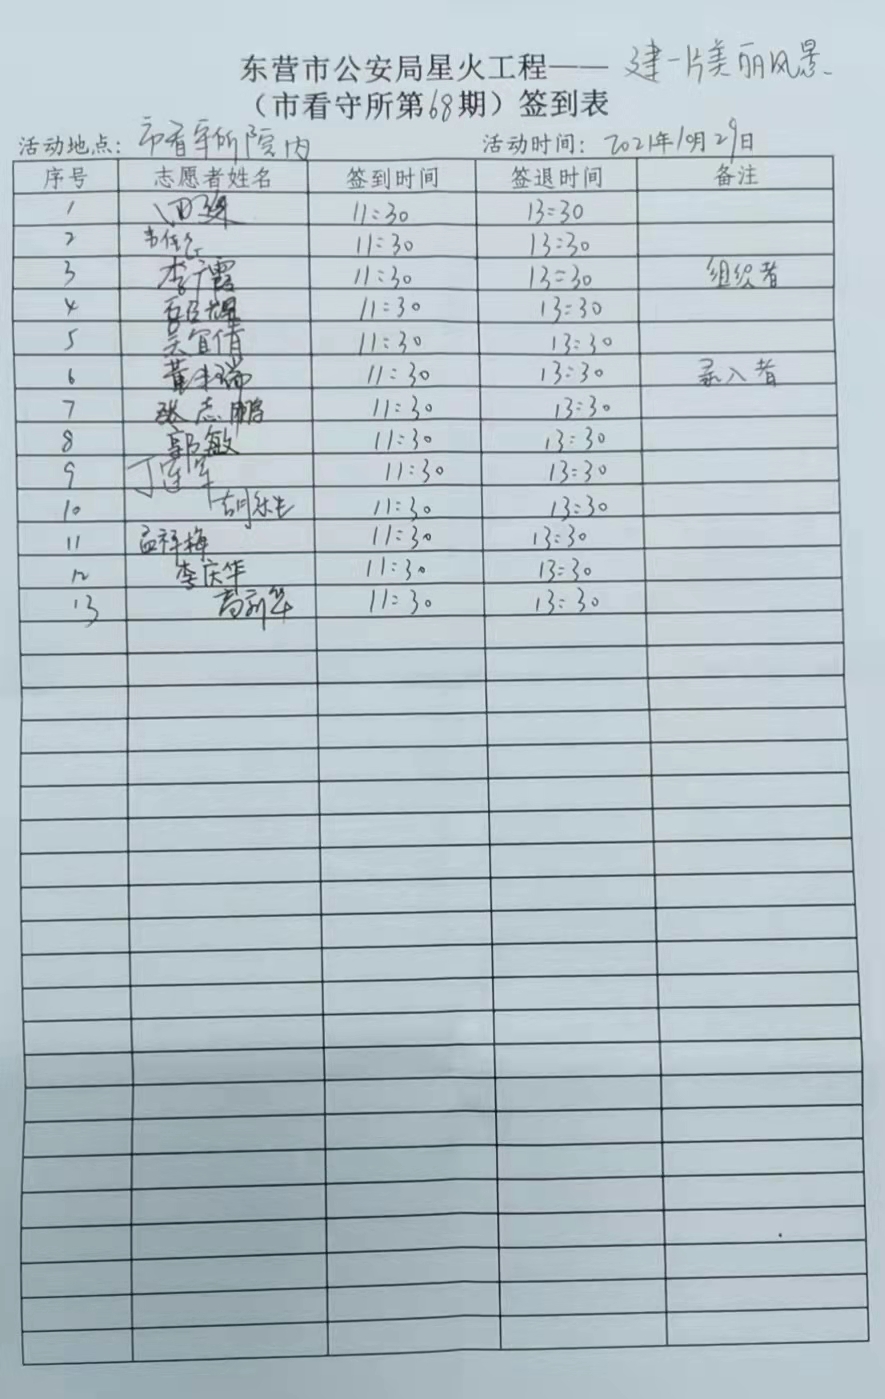 东营市公安局星火工程——建一片美丽风景
（市看守所第68期）签到表
活动地点：市看守所院内 活动时间：2021年10月29日
序号 志愿者姓名 签到时间 签退时间 备注
1 11:30 13:30
2 11:30 13:30
3 李广霞 11:30 13:30 组织者
4 11:30 13:30
5 吴宜倩 11:30 13:30
6 11:30 13:30 录入者
7 张志鹏 11:30 13:30
8 郭敏 11:30 13:30
9 11:30 13:30
10 11:30 13:30
11 孟祥梅 11:30 13:30
12 李庆华 11:30 13:30
13 11:30 13:30